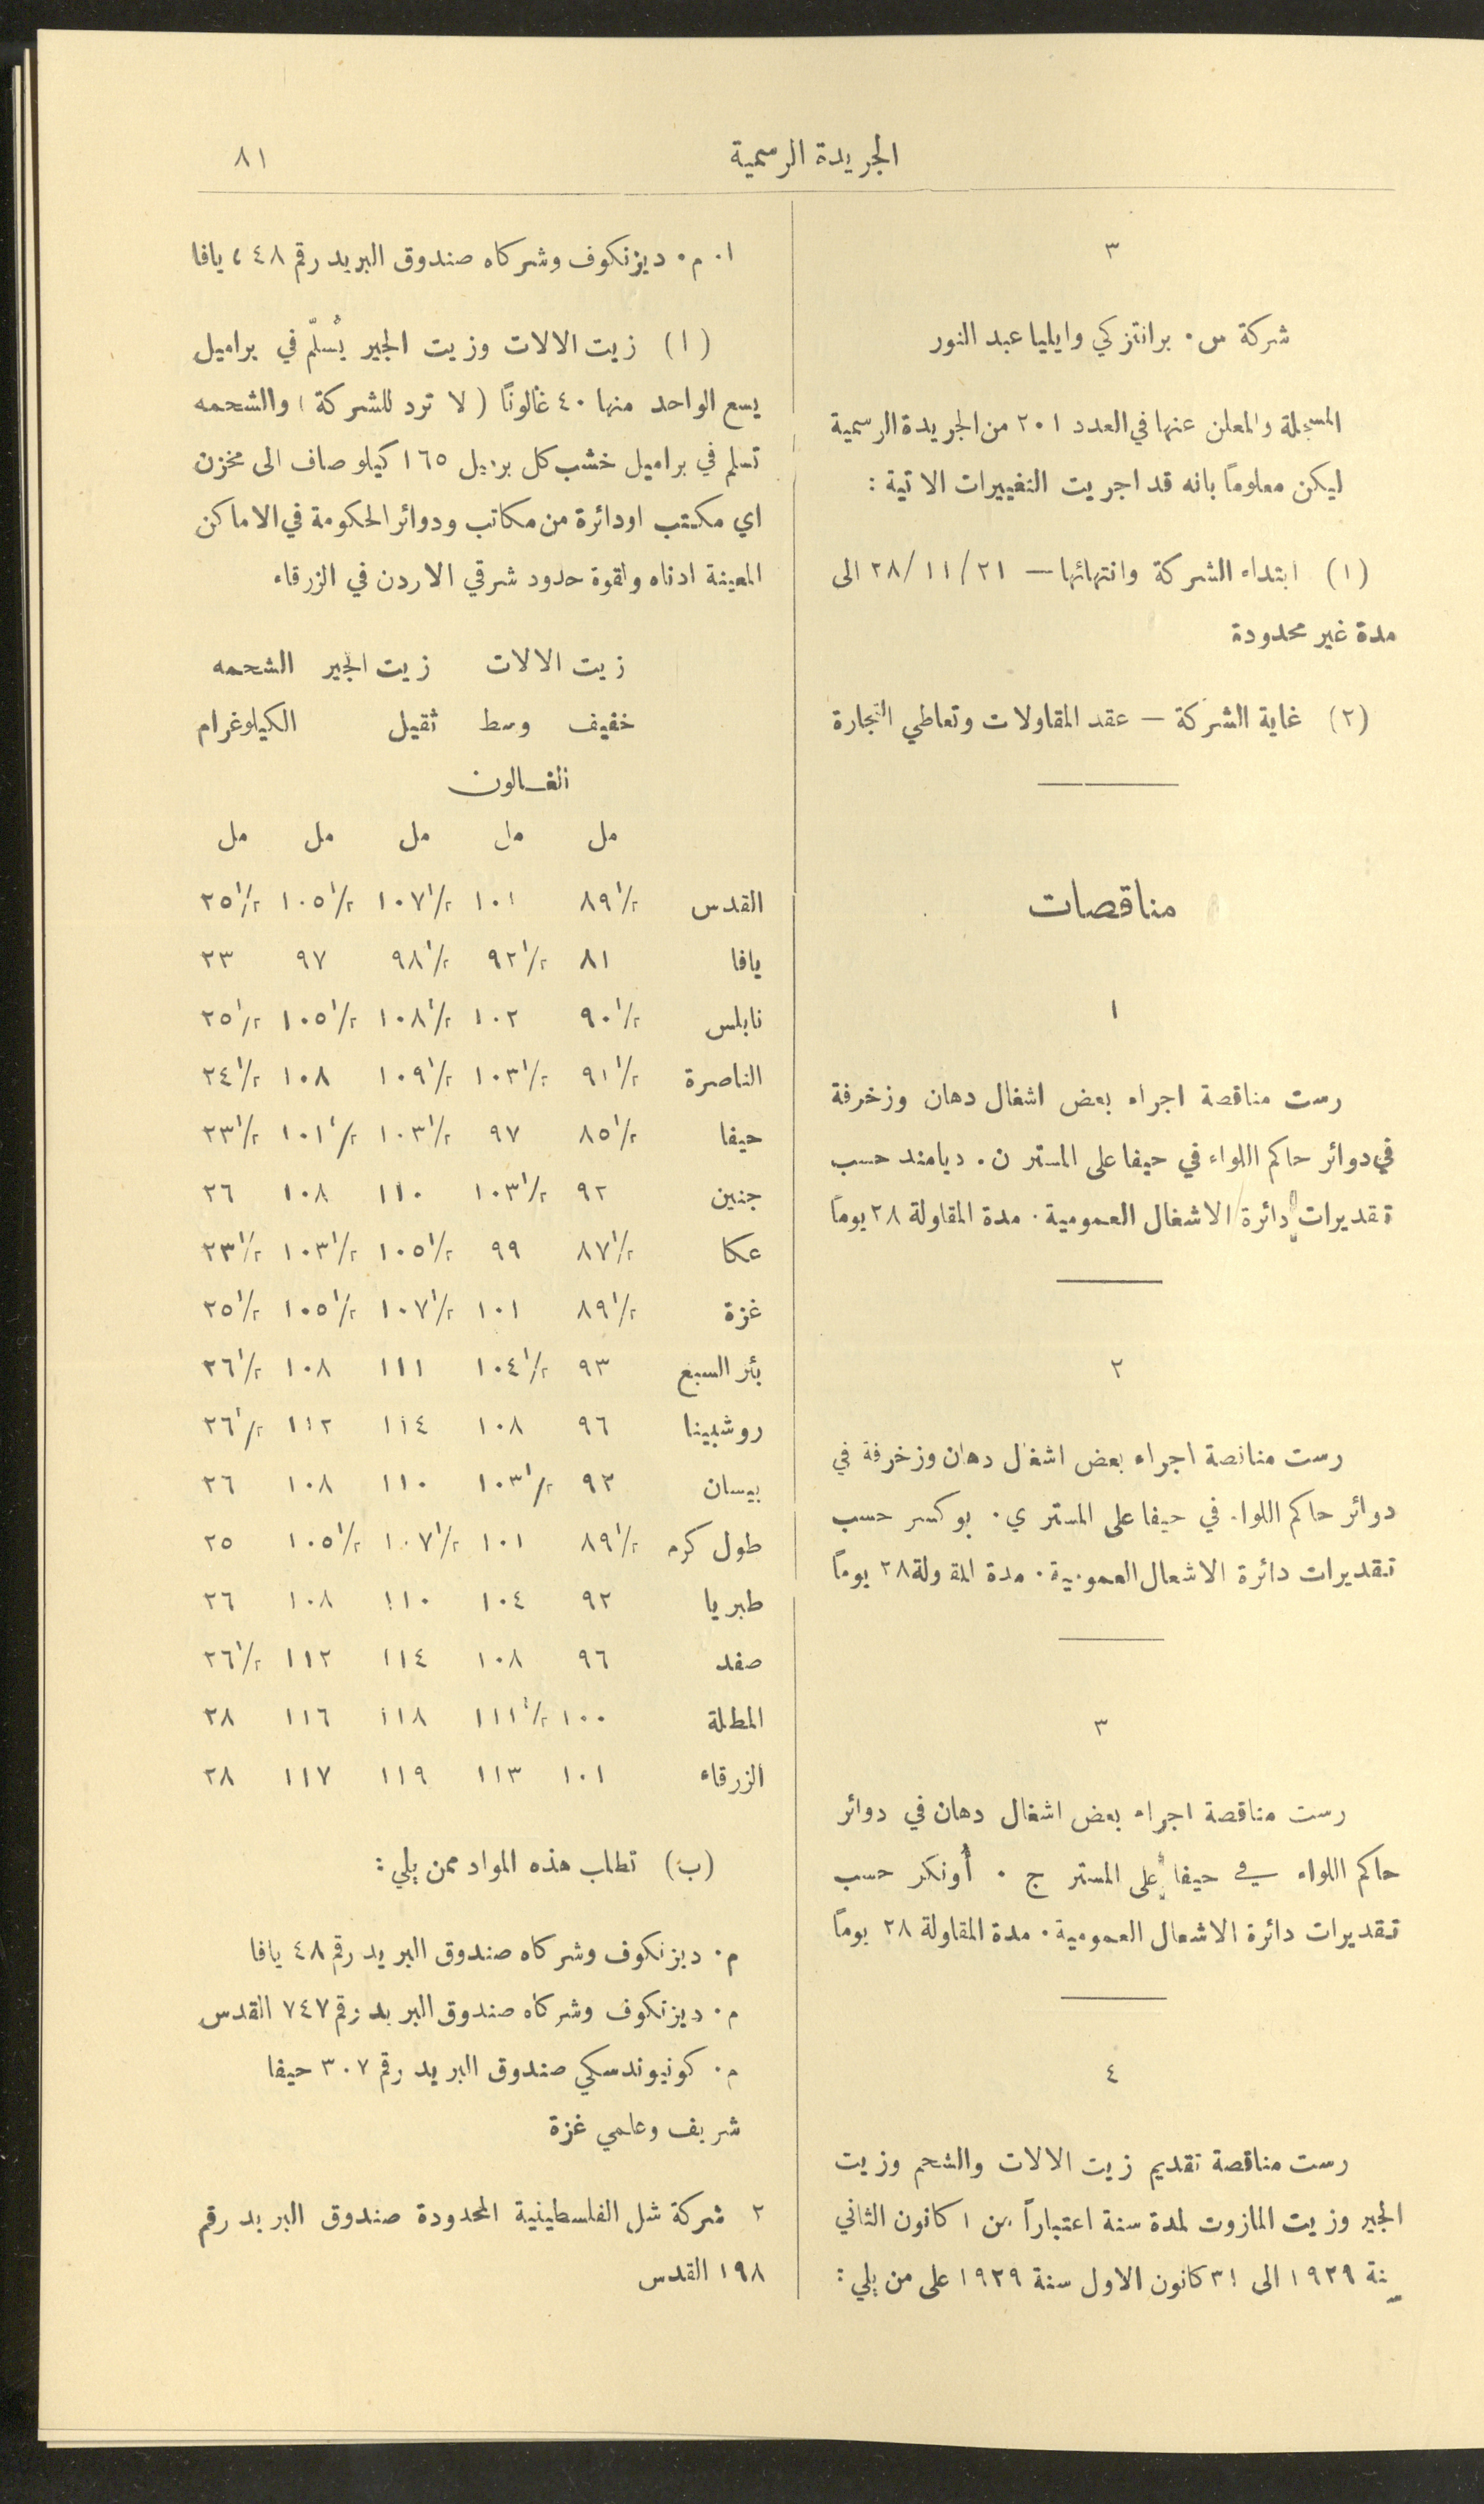 الجريدة الرسمية
٨١
٣
شركة س. برانتزكي وايليا عبد النور
المسجلة والمعلن عنها في العدد ٢٠١ من الجريدة الرسمية
ليكن معلوماً بانه قد اجريت التغييرات الاتية :
(١) ابتداء الشركة وانتهائها — ٢٨/١١/٢١ الى
مدة غير محدودة
(٢) غاية الشركة — عقد المقاولات وتعاطي التجارة
مناقصات
١
رست مناقصة اجراء بعض اشغال دهان وزخرفة
في دوائر حاكم اللواء في حيفا على المستر ن. ديامند حسب
تقديرات دائرة الاشغال العمومية. مدة المقاولة ٢٨ يوماً
٢
رست مناقصة اجراء بعض اشغال دهان وزخرفة في
دوائر حاكم اللواء في حيفا على المستر ي. بوكسر حسب
تقديرات دائرة الاشعال العمومية. مدة المقاولة ٢٨ يوماً
٣
رست مناقصة اجراء بعض اشغال دهان في دوائر
حاكم اللواء في حيفا على المستر ج . أونكر حسب
تقديرات دائرة الاشعال العمومية. مدة المقاولة ٢٨ يوماً
٤
رست مناقصة تقديم زيت الالات والشحم وزيت
الجير وزيت المازوت لمدة سنة اعتباراً من ١ كانون الثاني
سنة ١٩٢٩ الى ٣١ كانون الاول سنة ١٩٢٩ على من يلي :
١. م. ديزنكوف وشركاه صندوق البريد رقم ٤٨، يافا
(ا) زيت الالات وزيت الجير يُسلّم في براميل
يسع الواحد منها ٤٠ غالوناً (لا ترد للشركة) والشحمه
تسلم في براميل خشب كل برميل ١٦٥ كيلو صاف الى مخزن
اي مكتب اودائرة من مكاتب ودوائر الحكومة في الاماكن
المعينة ادناه ولقوة حدود شرقي الاردن في الزرقاء
زيت الالات زيت الجير الشحمه
خفيف وسط ثقيل الكيلوغرام
الغالون
مل مل مل مل مل
القدس ٨٩١/٢ ١٠١ ١٠٧١/٢ ١٠٥١/٢ ٢٥١/٢
يافا ٨١ ٩٢١/٢ ٩٨١/٢ ٩٧ ٢٣
نابلس ٩٠١/٢ ١٠٢ ١٠٨١/٢ ١٠٥١/٢ ٢٥١/٢
الناصرة ٩١١/٢ ١٠٣١/٢ ١٠٩١/٢ ١٠٨ ٢٤١/٢
حيفا ٨٥١/٢ ٩٧ ١٠٣١/٢ ١٠١١/٢ ٢٣١/٢
جنين ٩٢ ١٠٣١/٢ ١١٠ ١٠٨ ٢٦
عكا ٨٧١/٢ ٩٩ ١٠٥١/٢ ١٠٣١/٢ ٢٣١/٢
غزة ٨٩١/٢ ١٠١ ١٠٧١/٢ ١٠٥١/٢ ٢٥١/٢
بئر السبع ٩٣ ١٠٤١/٢ ١١١ ١٠٨ ٢٦١/٢
روشبينا ٩٦ ١٠٨ ١١٤ ١١٢ ٢٦١/٢
بيسان ٩٢ ١٠٣١/٢ ١١٠ ١٠٨ ٢٦
طول كرم ٨٩١/٢ ١٠١ ١٠٧١/٢ ١٠٥١/٢ ٢٥
طبريا ٩٢ ١٠٤ ١١٠ ١٠٨ ٢٦
صفد ٩٦ ١٠٨ ١١٤ ١١٢ ٢٦١/٢
المطلة ١٠٠ ١١١١/٢ ١١٨ ١١٦ ٢٨
الزرقاء ١٠١ ١١٣ ١١٩ ١١٧ ٢٨
(ب) تطلب هذه المواد ممن يلي :
م. ديزنكوف وشركاه صندوق البريد رقم ٤٨ يافا
م. ديزنكوف وشركاه صندوق البريد رقم ٧٤٧ القدس
م. كونيوندسكي صندوق البريد رقم ٣٠٧ حيفا
شريف وعلمي غزة
٢ شركة شل الفلسطينية المحدودة صندوق البريد رقم
١٩٨ القدس